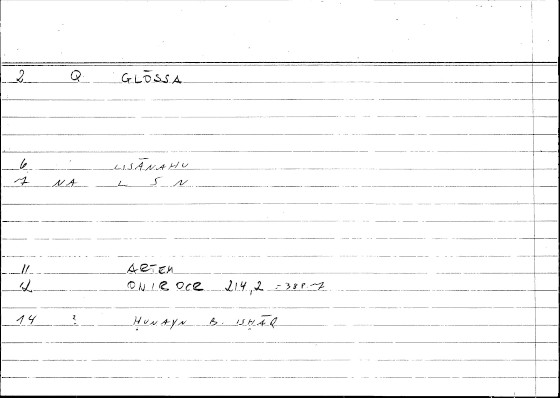 2 Q GLŌSSA
6 LISĀNAHU
7 NA L S N
11 ARTEM
12 ONIROCR 214,2 = 388-7
14 ? ḤUNAYN B. ISḤĀQ